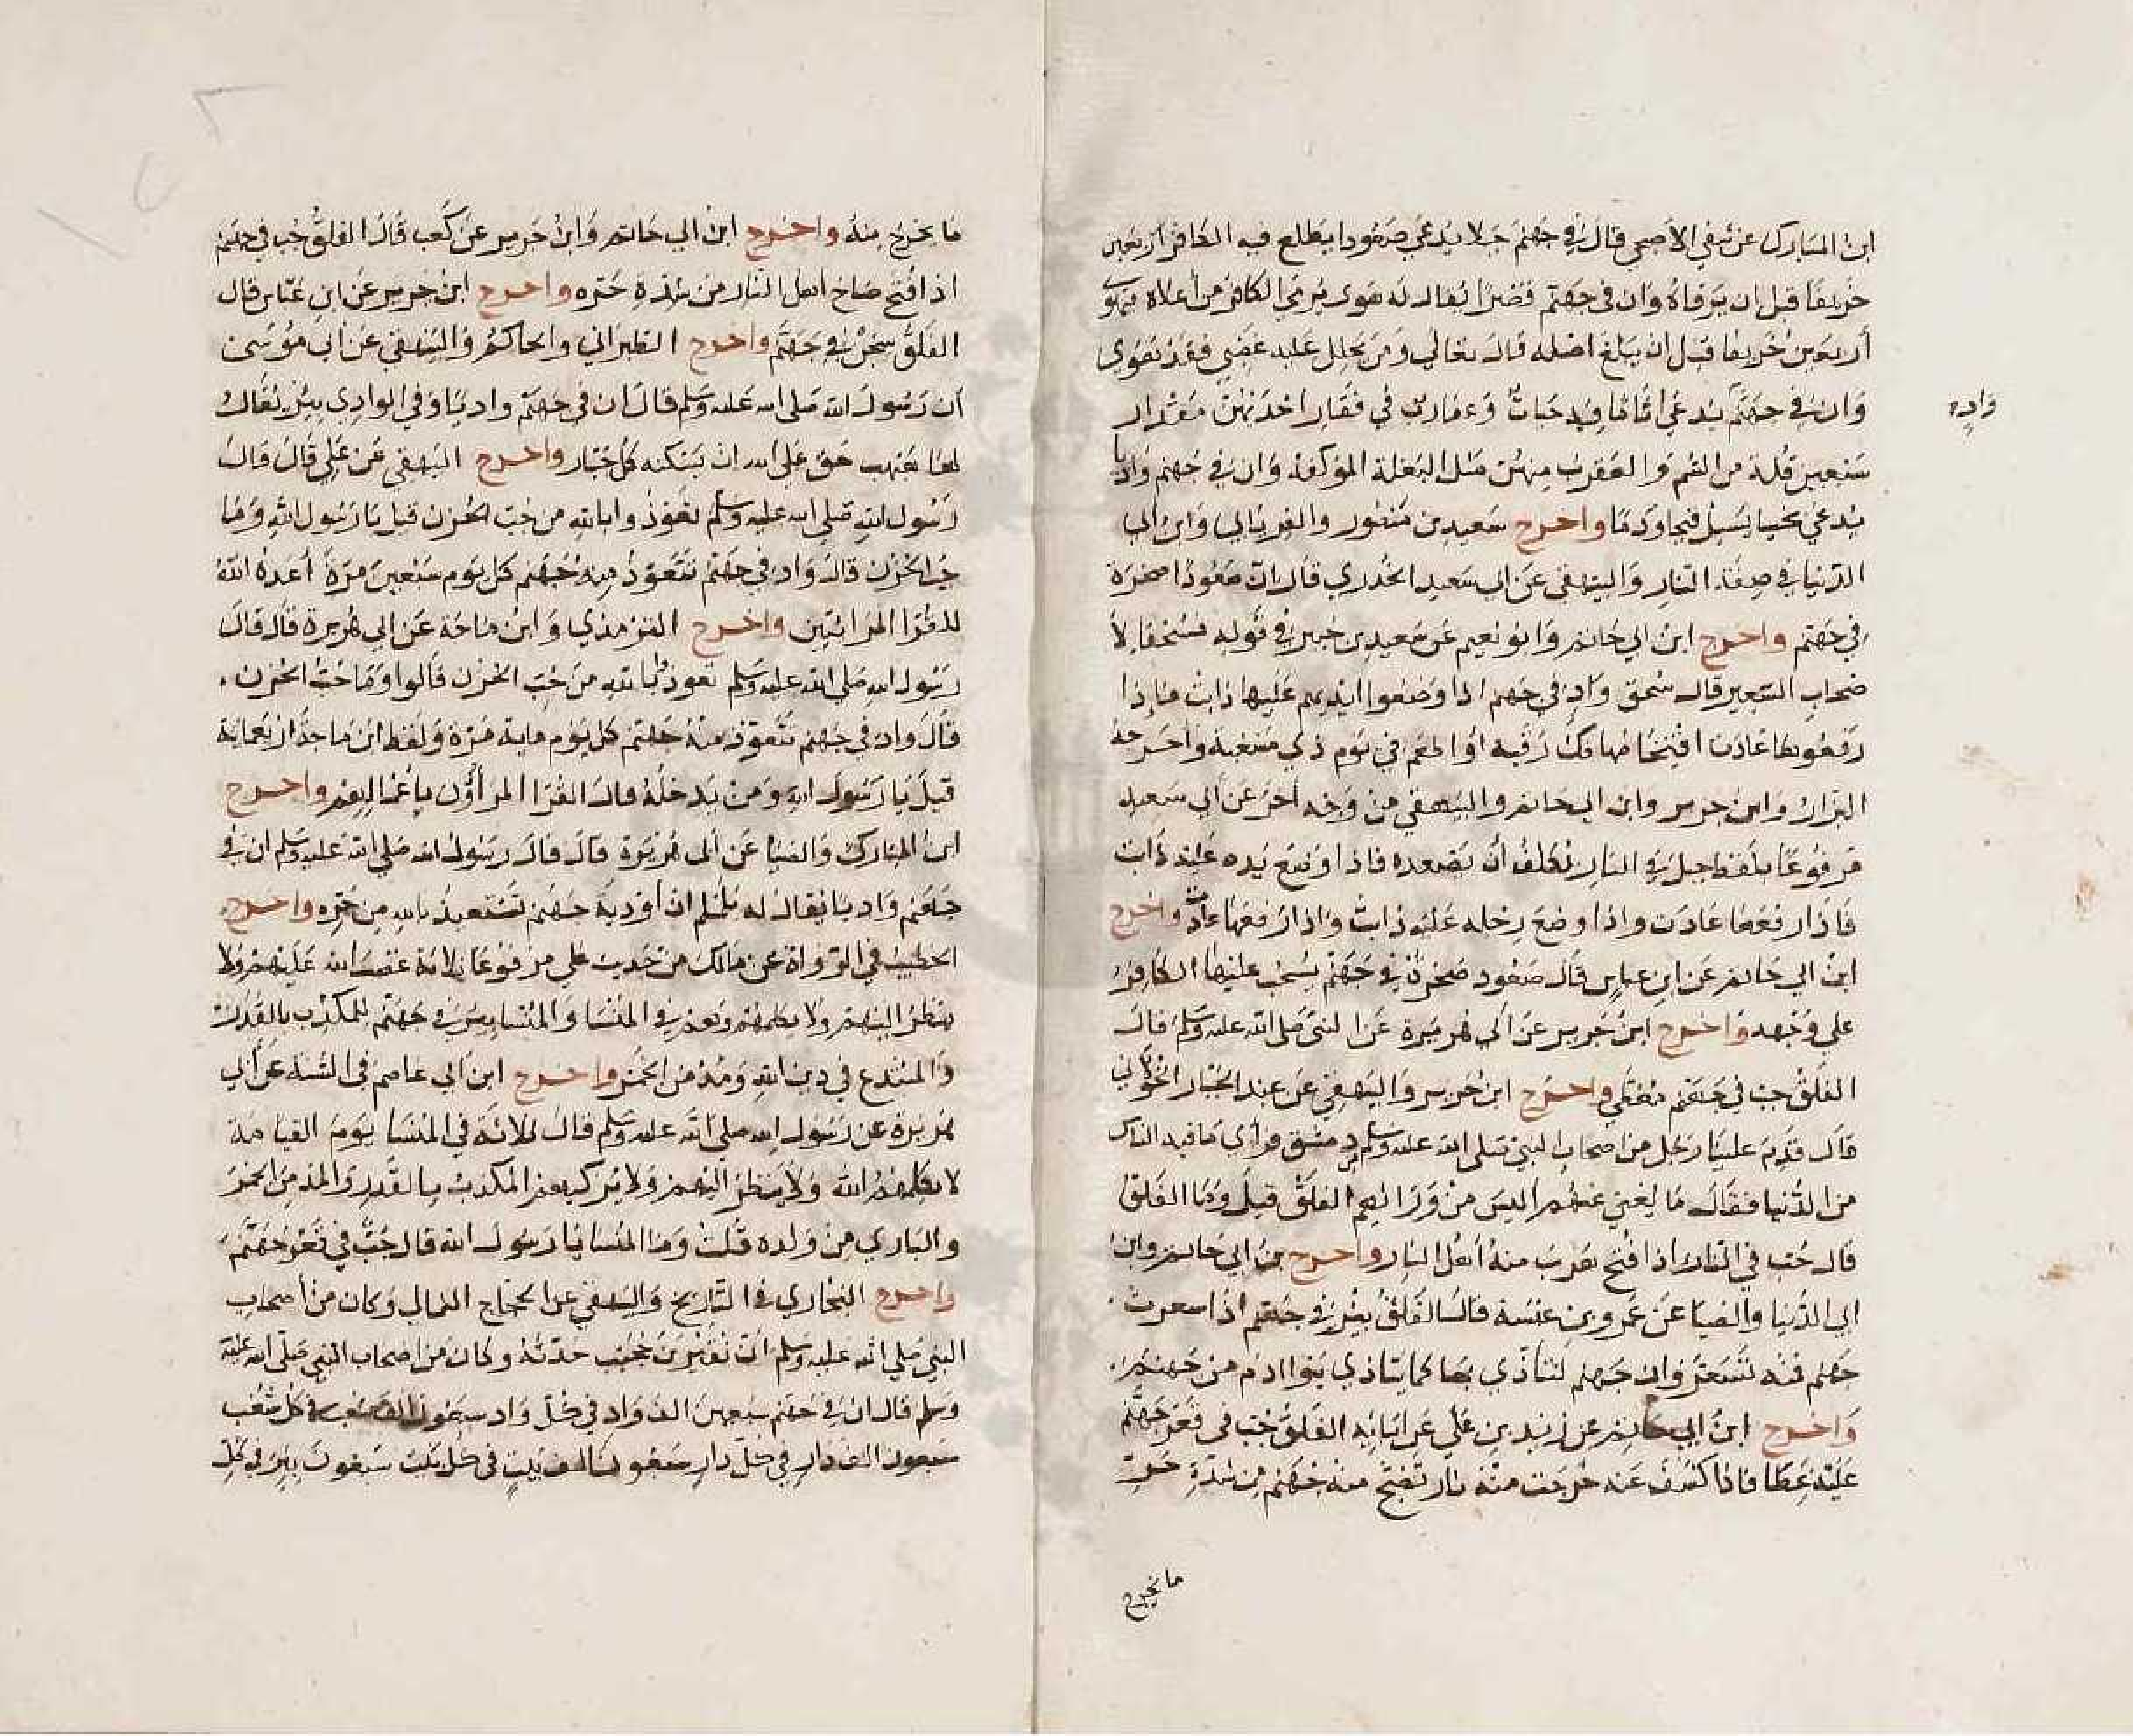 ابن المبارك عن شفي الاصبحي قال ان في جهنم جبلا يدعي صعودا يطلع فيه الكافر اربعين
خريفا قبل ان يرقاه وان في جهنم قصرا يقال له هوى يرمي الكافر من اعلاه فيهوي
أربعين خريفا قبل ان يبلغ اصله قال تعالي ومن يحلل عليه غضبي فقد هوى
وان في جهنم يدعي اثاما فيه حيات وعقارب في فقار احداهن مقدار
واد
سبعين قلة من السم والعقرب منهن مثل البغلة الموكفة وان في جهنم واديا
يدعي غيا يسيل قيحا ودما واخرج سعيد بن منصور والفريابي وابن ابي
الدنيا في صفة النار والبيهقي عن ابي سعيد الخدري قال ان صعودا صخرة
في جهنم واخرج ابن ابي حاتم وابو نعيم عن سعيد بن جبير في قوله فسحقا لا
صحاب السعير قال سحق واد في جهنم اذا وضعوا ايديهم عليها ذابت فاذا
رفعوها عادت اقتحامها فك رقبة او اطعم في يوم ذي مسغبة واخرجه
البزار وابن جرير وابن ابي حاتم والبيهقي من وجه أخر عن أبي سعيد
مرفوعا بلفظ جبل في النار يكلف أن يصعده فاذا وضع يده عليه ذابت
فاذا رفعها عادت واذا وضع رجله عليه ذابت واذا رفعها عادت واخرج
ابن ابي حاتم عن ابن عباس قال صعود صخرة في جهنم يسحب عليها الكافر
علي وجهه واخرج ابن جرير عن ابي هريرة عن النبي صلى الله عليه وسلم قال
الفلق جب في جهنم مغطي واخرج ابن جرير والبيهقي عن عبد الجبار الخولاني
قال قدم علينا رجل من اصحاب النبي صلى الله عليه وسلم دمشق فرأي ما فيه الناس
من الدنيا فقال ما يغني عنهم أليس من ورائهم الفلق قيل وما الفلق
قال جب في النار اذا فتح هرب منه أهل النار واخرج بن ابي حاتم وابن
ابي الدنيا والضيا عن عمرو بن عنبسة قال الفلق بير في جهنم اذا سعرت
جهنم فمنه تسعر وان جهنم لتتأذي بها كما يتاذي بنوا ادم من جهنم
واخرج ابن ابي حاتم عن زيد بن علي عن ابائه الفلق جب في قعر جهنم
عليه غطا فاذا كشف عنه خرجت منه نار تضج منه جهنم من شدة حر
ما يخرج
ما يخرج منه واخرج ابن ابي حاتم وابن جرير عن كعب قال الفلق جب في جهنم
اذا فتح صاح اهل النار من شدة حره واخرج ابن جرير عن ابن عباس قال
الفلق سجن في جهنم واخرج الطبراني والحاكم والبيهقي عن ابي موسى
أن رسول الله صلى الله عليه وسلم قال ان في جهنم واديا وفي الوادي بير يقال
لها هبهب حق علي الله ان يسكنه كل جبار واخرج البيهقي عن علي قال قال
رسول الله صلى الله عليه وسلم تعوذوا بالله من جب الحزن قيل يا رسول الله وما
جب الحزن قال واد في جهنم تتعوذ منه جهنم كل يوم سبعين مرة أعده الله
للقرا المرائيين واخرج الترمذي وابن ماجة عن ابي هريرة قال قال
رسول الله صلي الله عليه وسلم تعوذوا بالله من جب الحزن قالوا وما جب الحزن
قال واد في جهنم تتعوذ منه جهنم كل يوم ماية مرة ولفظ ابن ماجة اربعماية
قيل يا رسول الله ومن يدخله قال القرا المراؤن باعمالهم واخرج
ابن المبارك والضيا عن ابي هريرة قال قال رسول الله صلي الله عليه وسلم ان في
جهنم واديا يقال له لملم ان أودية جهنم تستعيذ بالله من حره واخرج
الخطيب في الرواة عن مالك من حديث علي مرفوعا ثلاثة غضب الله عليهم ولا
ينظر اليهم ولا يكلمهم وهم في المنسا والمنسا بير في جهنم للمكذب بالقدر
والمبتدع في دين الله ومدمن الخمر واخرج ابن ابي عاصم في السنة عن أبي
هريرة عن رسول الله صلي الله عليه وسلم قال ثلاثة في المنسا يوم القيامة
لا يكلمهم الله ولا ينظر اليهم ولا يزكيهم المكذب بالقدر والمدمن الخمر
والباري من ولده قلت وما المنسا يا رسول الله قال جب في قعر جهنم
واخرج البخاري في التاريخ والبيهقي عن الحجاج الثمالي وكان من أصحاب
النبي صلي الله عليه وسلم ان نفير بن مجيب حدثه وكان من اصحاب النبي صلى الله عليه
وسلم قال ان في جهنم سبعين الف واد في كل واد سبعون الف شعب في كل شعب
سبعون الف دار في كل دار سبعون الف بيت في كل بيت سبعون بير في كل